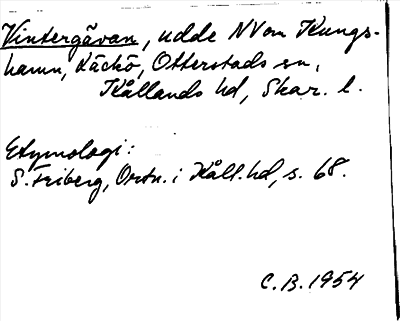 Vintergåvan, udde NV om Kungs-
hamn, Käckö, Otterstads sn,
Kållands hd, Skar. l.
Etymologi:
S. Friberg, Ortn. i Kåll. hd, s. 68.
C.B. 1954